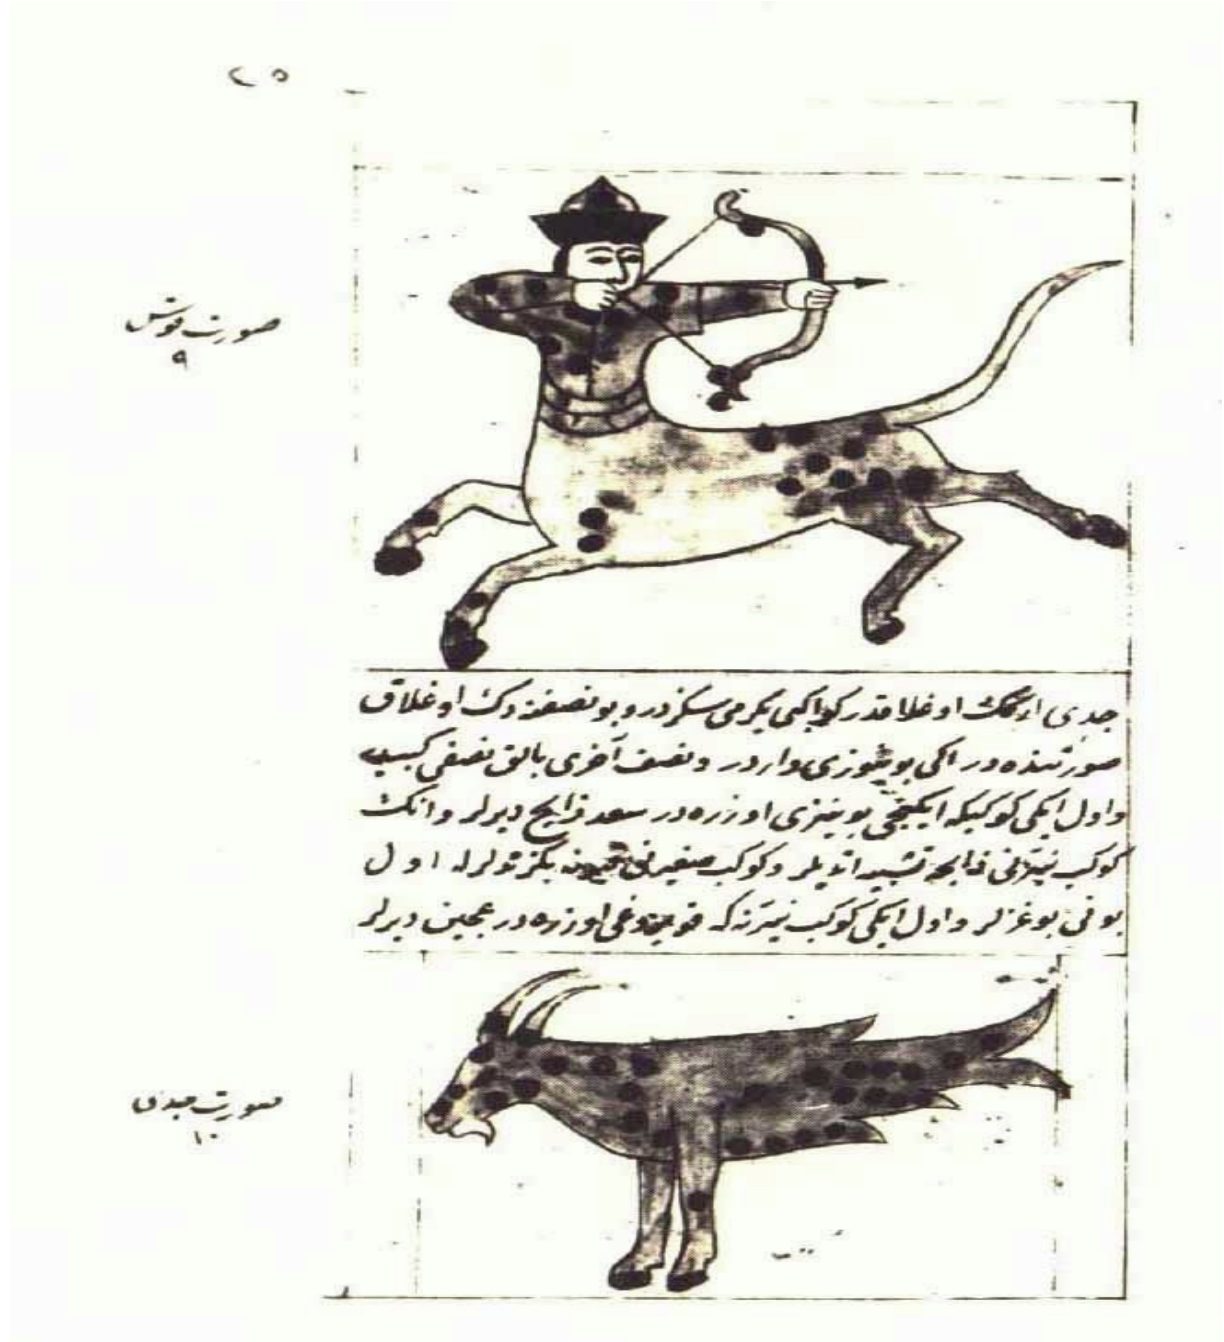 ٢٥
صورت قوس
٩
جدی ارکك اوغلاقدر كواكبی یكرمی سكزدر و بو نصفنه دك اوغلاق
صورتنده در ایكی بوینوزی واردر و نصف آخری بالق نصفی كبیدر
و اول ایكی كوكبكه ایكنجی بوینزی اوزره در سعد ذابح دیرلر و انك
كوكب نیرینی ذابحه تشبیه اتدیلر و كوكب صغیرنی بكزتدلر اول
بونی بوغزلر و اول ایكی كوكب نیر كه قویروغی اوزره در دیرلر
صورت جدی
١٠